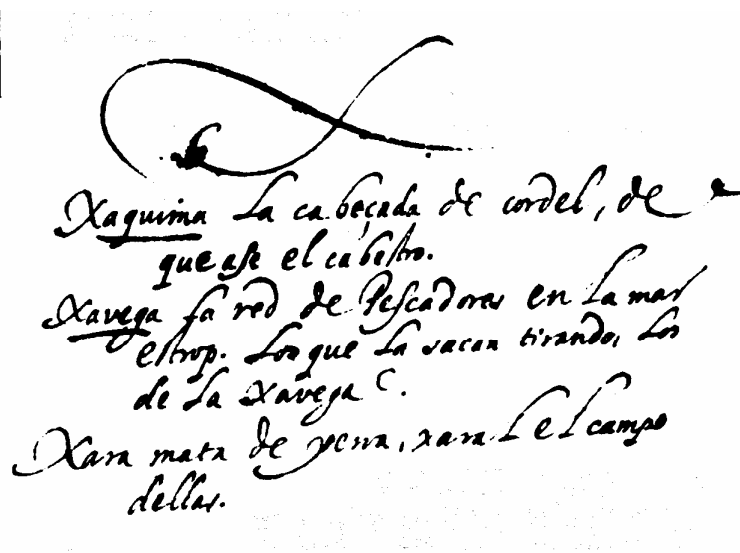 X
Xaquima La cabeçada de cordel, de
que ase el cabestro.
Xavega La red de Pescadores en La mar
estrop. Los que La sacan tirando, Los
de La Xavega
Xara mata de yerva, xaral el campo
dellas.